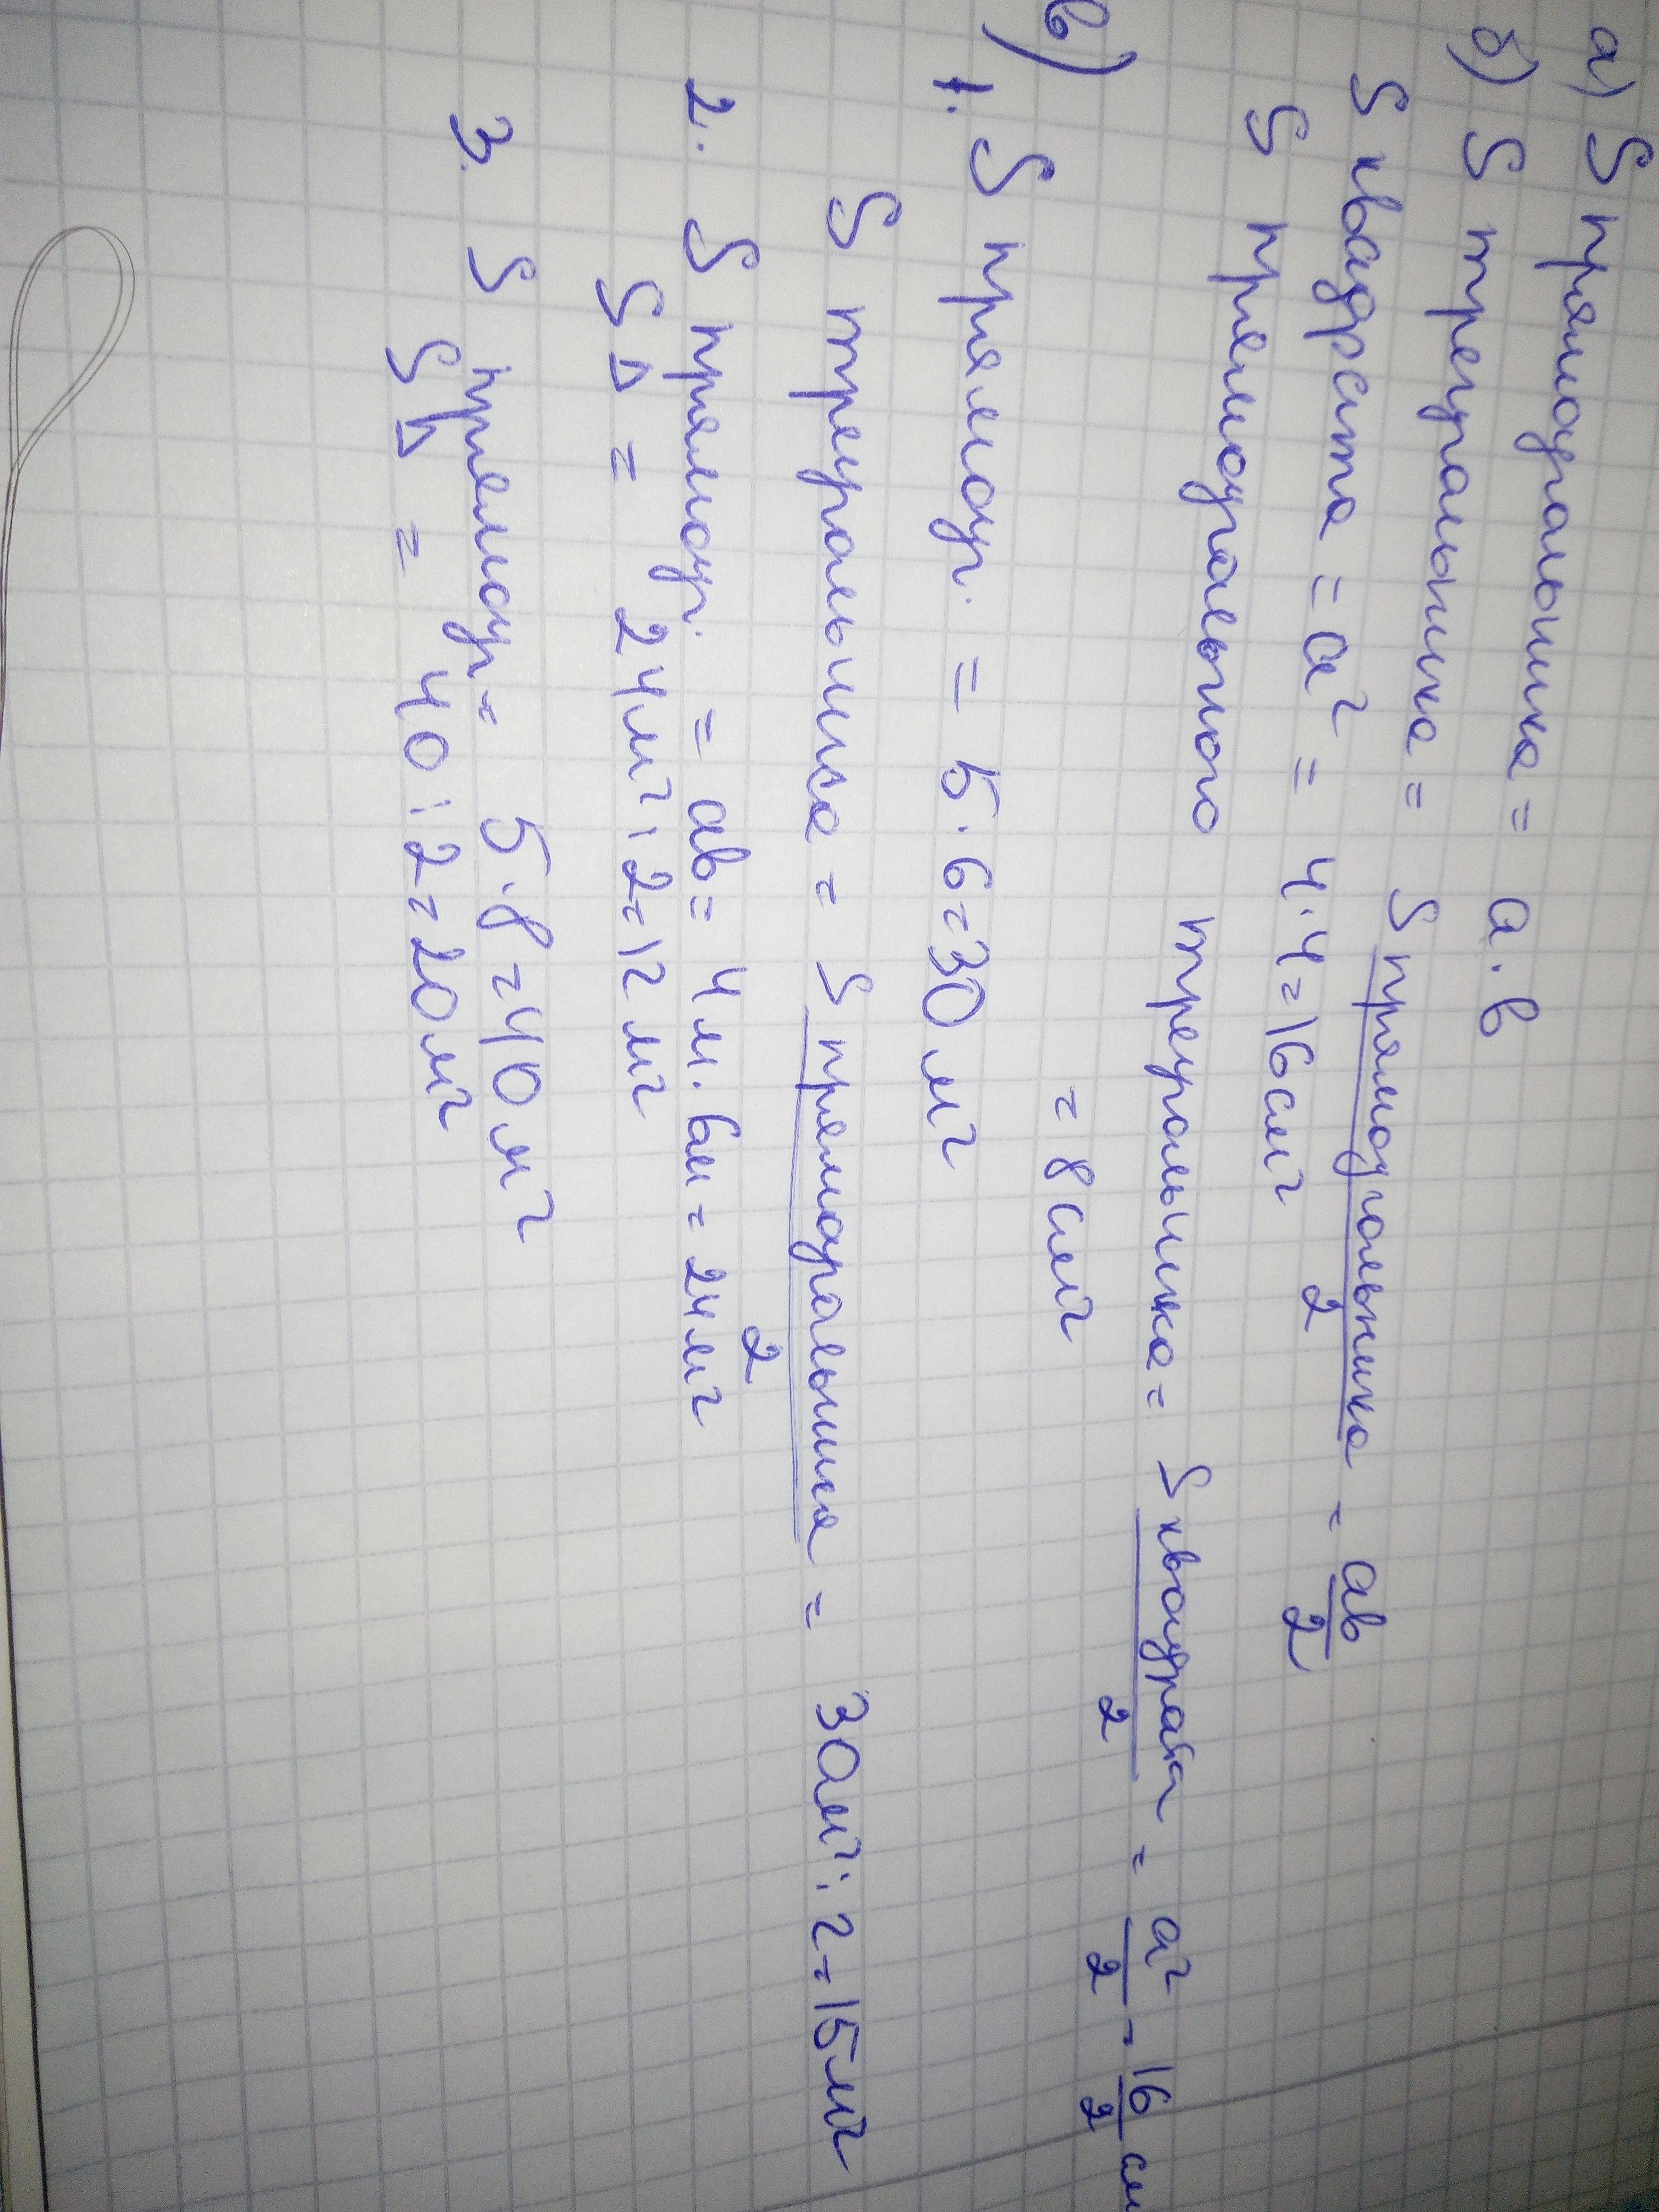 а) S прямоугольника = a · b
б) S треугольника = S прямоугольника / 2 = ab / 2
S квадрата = a² = 4 · 4 = 16 см²
S прямоугольного треугольника = S квадрата / 2 = a² / 2 = 16 / 2 см
= 8 см²
в)
1. S прямоуг. = 5 · 6 = 30 м²
S треугольника = S прямоугольника / 2 = 30 м² : 2 = 15 м²
2. S прямоуг. = ab = 4 м · 6 м = 24 м²
S Δ = 24 м² : 2 = 12 м²
3. S прямоуг = 5 · 8 = 40 м²
S Δ = 40 : 2 = 20 м²